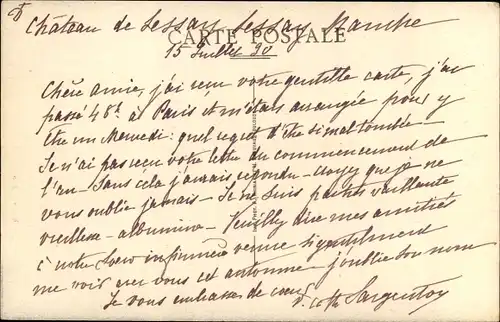 Château de Lessay Lessay Manche
CARTE POSTALE
15 Juillet 20
Chère amie, j'ai reçu votre gentille carte, j'ai
passé 48h à Paris et m'étais arrangée pour y
être un Mercredi : quel regret d'être si mal tombée
Je n'ai pas reçu votre lettre du commencement de
l'an - Sans cela j'aurais répondu - croyez que je ne
vous oublie jamais - Je ne suis pas très vaillante
vieillesse - albumine - Veuillez dire mes amitiés
à votre Soeur infirmière venue si gentiment
me voir avec vous cet automne j'oublie son nom
Je vous embrasse de coeur
Sargenton